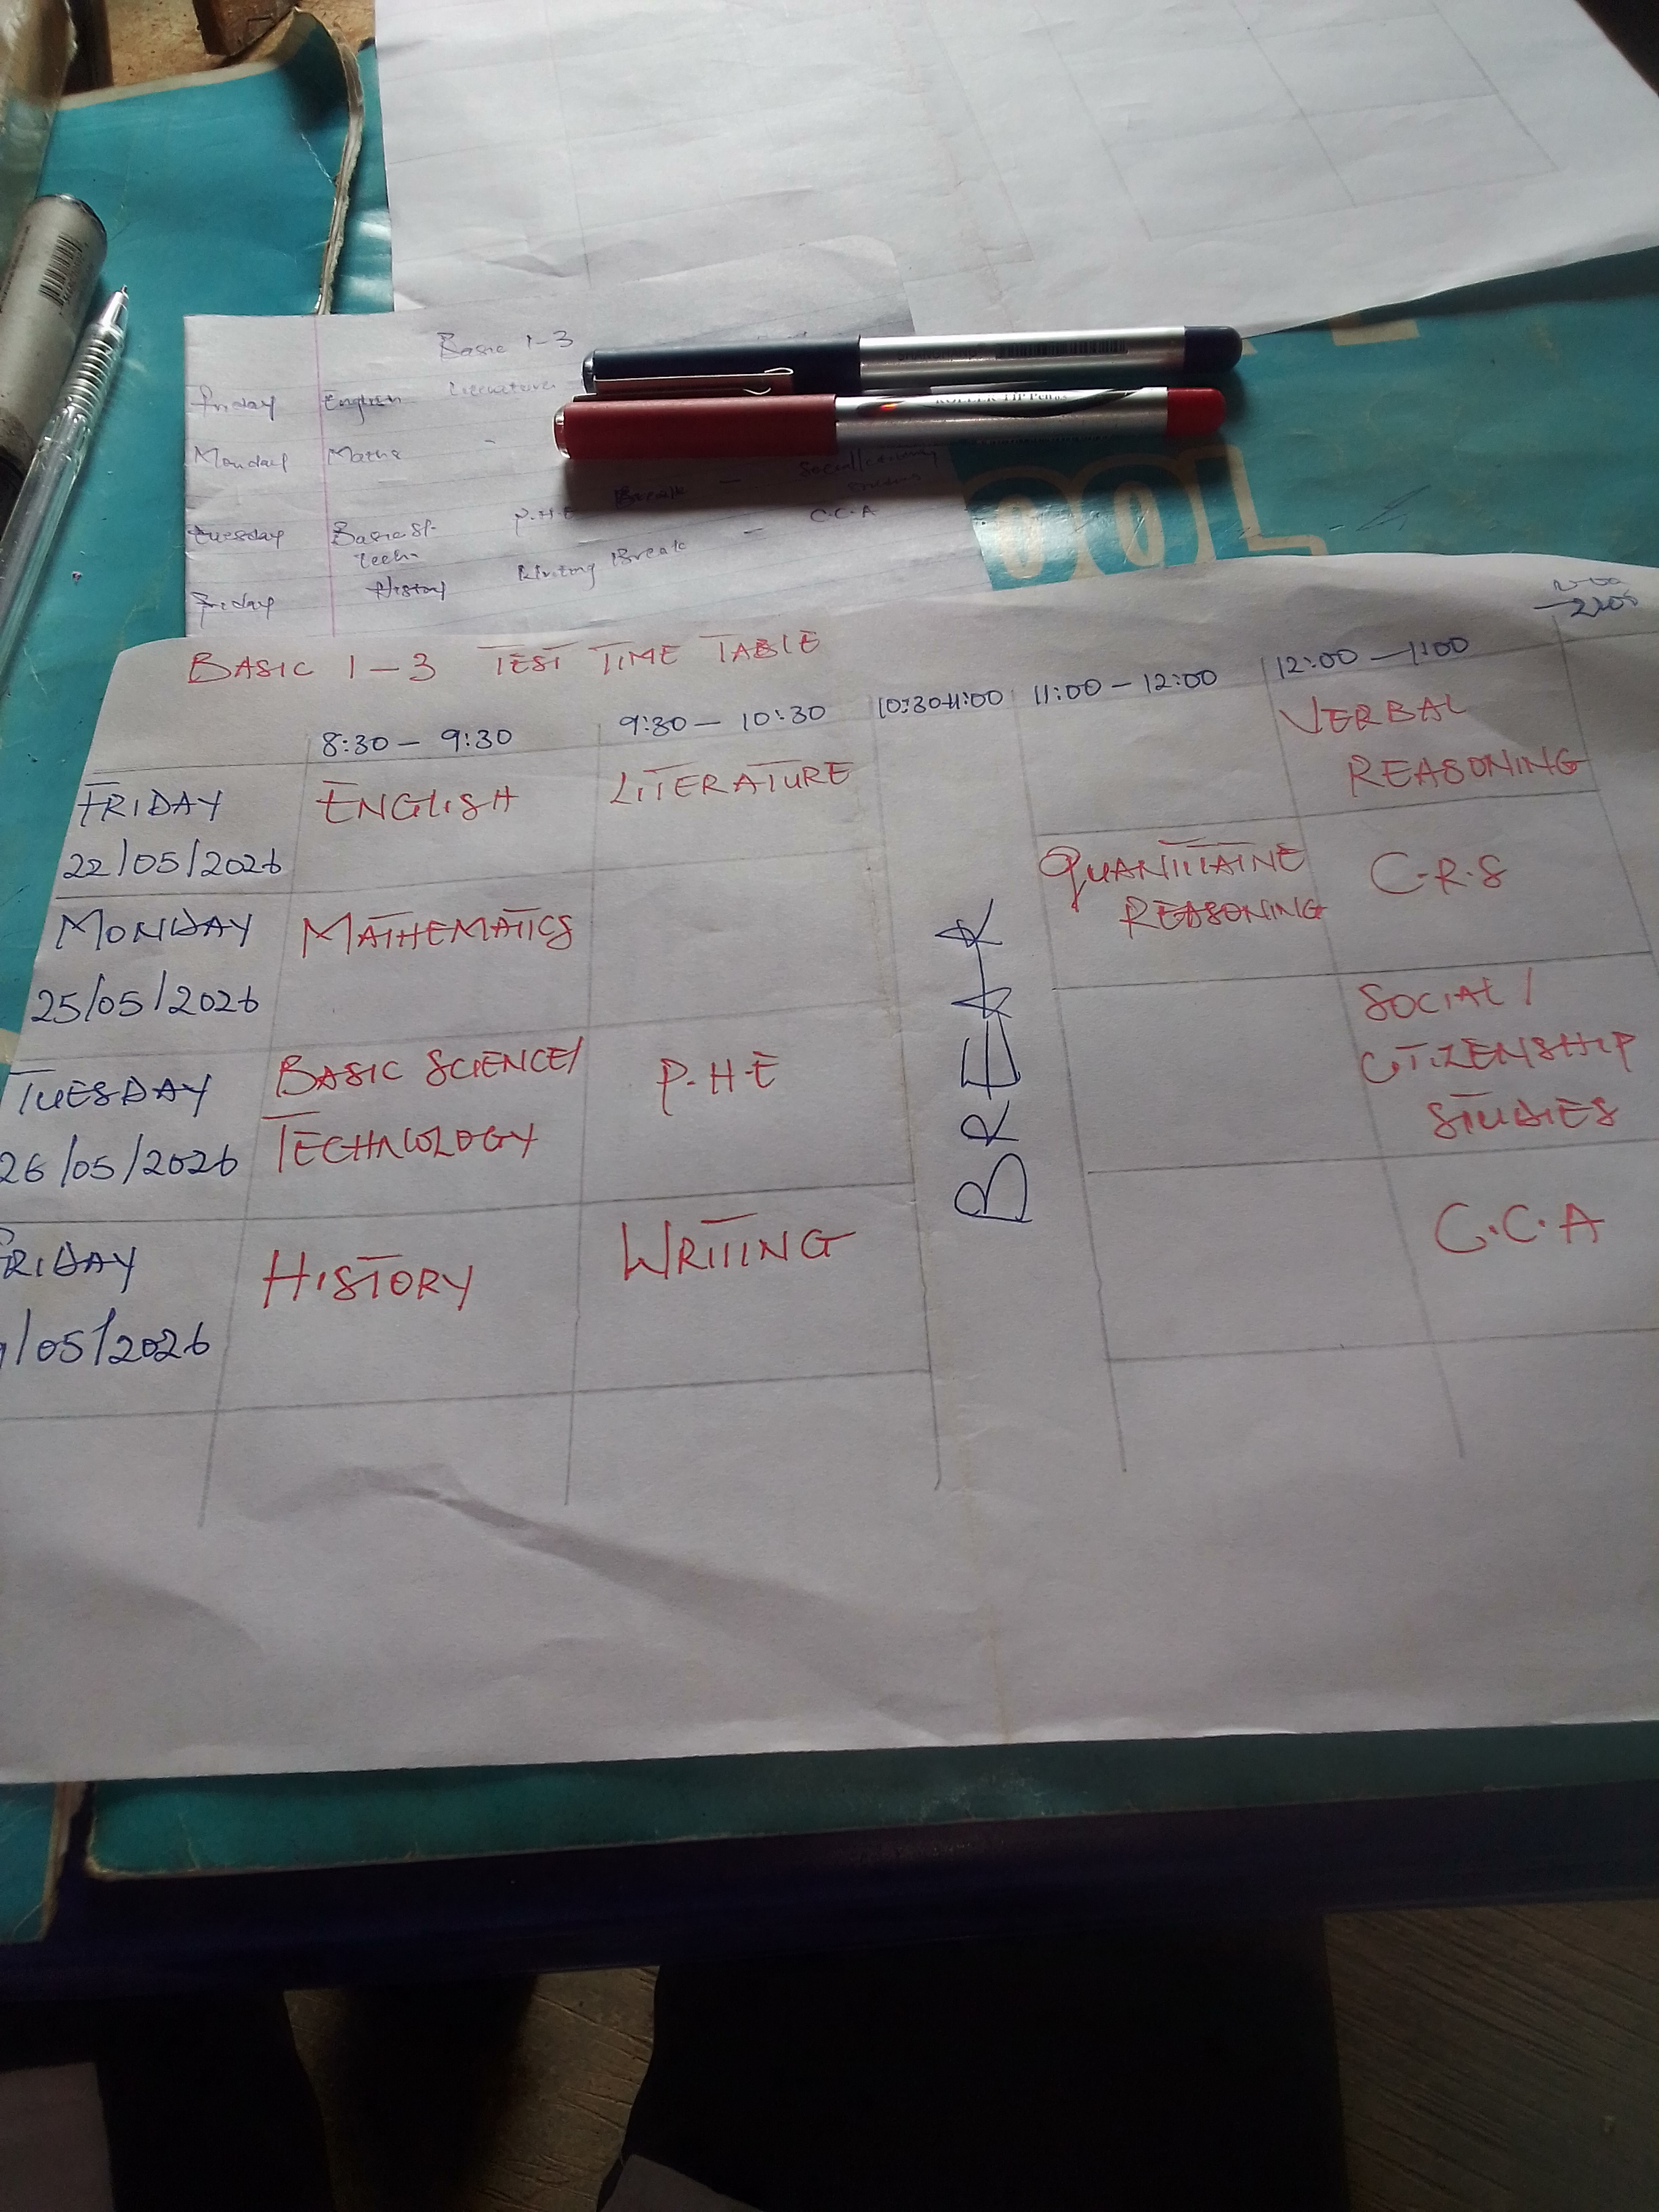 Basic 1-3
Friday English Literature
Monday Maths -
Break - Social/
Tuesday Basic st- P.H.E
Tech
C.C.A
Friday History Writing Break -
OOL
ROLLER TIP Pen
BASIC 1 - 3 TEST TIME TABLE
8:30 - 9:30 9:30 - 10:30 10:30-11:00 11:00 - 12:00 12:00 - 1:00
FRIDAY ENGLISH LITERATURE VERBAL
REASONING
22/05/2026
MONDAY MATHEMATICS QUANTITATINE C.R.S
REASONING
25/05/2026
TUESDAY BASIC SCIENCE/ P.H.E SOCIAL/
TECHNOLOGY CITIZENSHIP
STUDIES
26/05/2026
BREAK
FRIDAY HISTORY WRITING C.C.A
/05/2026